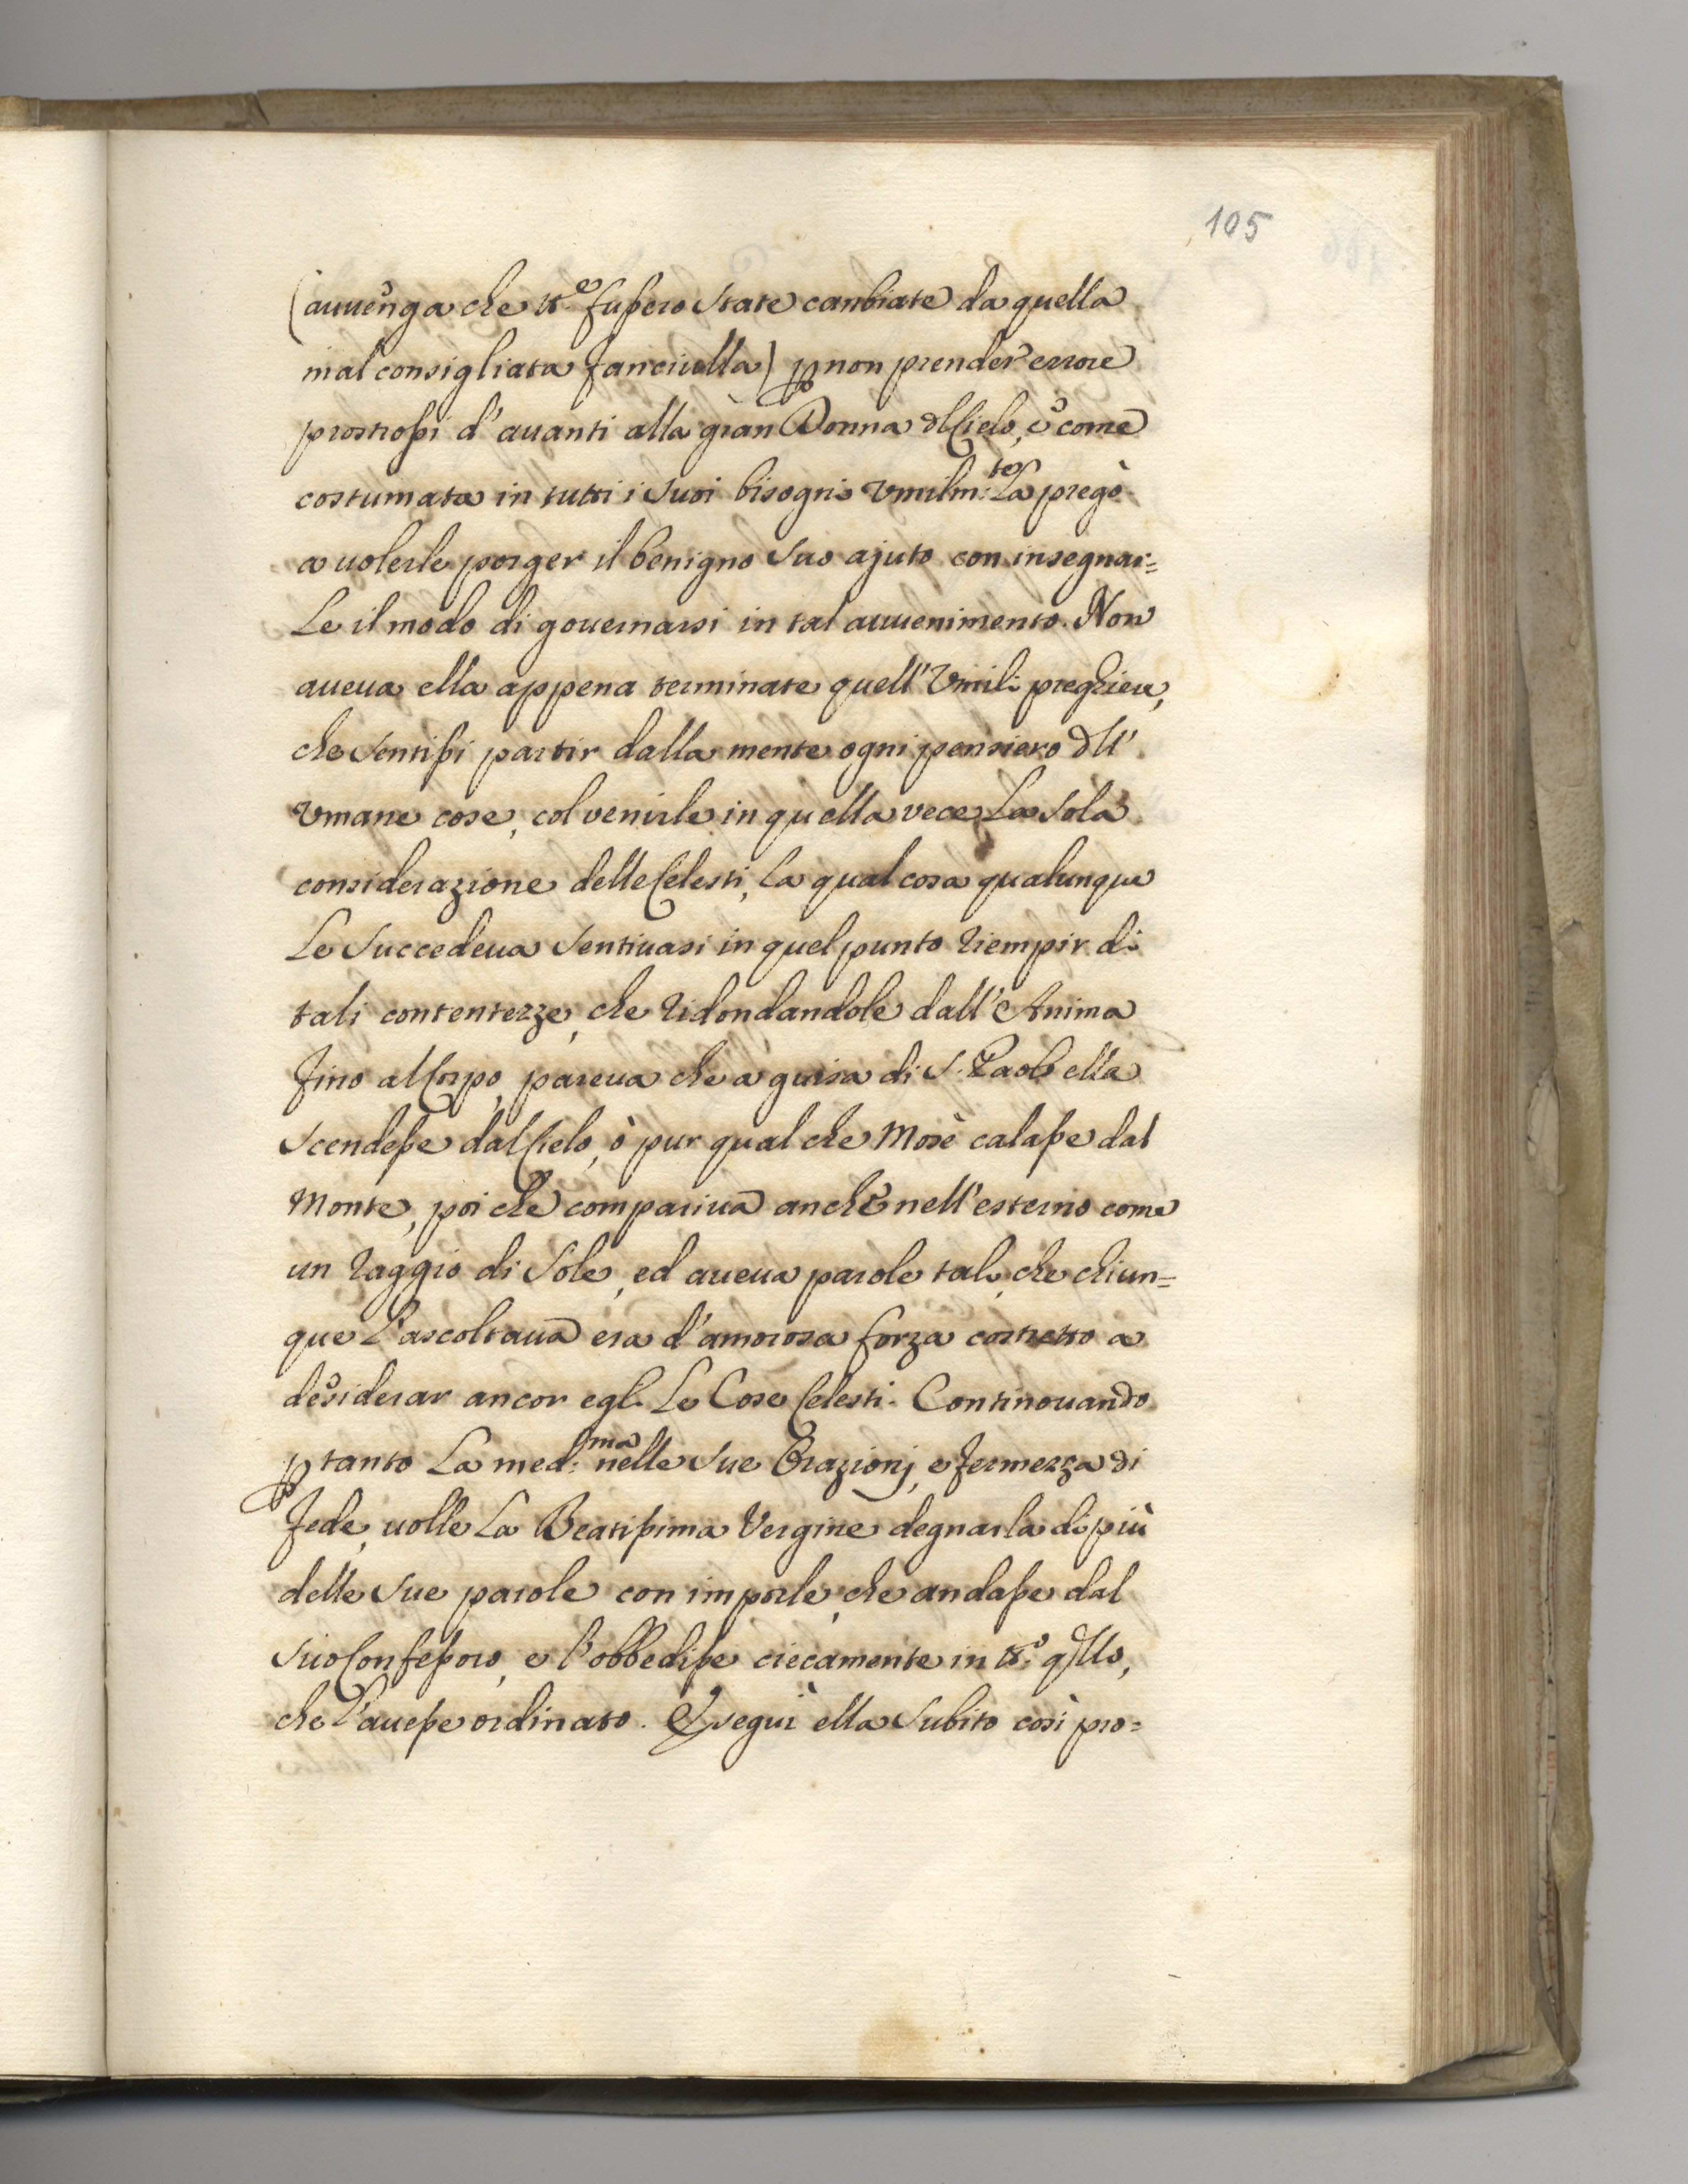 105
(auuenga che tt.e fussero state canbiate da quella
mal consigliata fanciulla) p non prender errore
prostrossi d'auanti alla gran Donna dl Cielo, e come
costumata in tutti i suoi bisogni vmilm:te La pregò
a uolerle porger il benigno suo ajuto con insegnar=
Le il modo di gouernarsi in tal auuenimento. Non
aueua ella appena terminate quell'Vmili preghiere,
che sentissi partir dalla mente ogni pensiero dll'
vmane cose, col venirle in quella vece La sola
considerazione delle Celesti, la qual cosa qualunque
Le succedeua sentiuasi in quel punto riempir di
tali contentezze, che ridondandole dall'Anima
fino al Corpo, pareua che a guisa di S. Paolo ella
scendesse dal Cielo, ò pur qual che Mosè calasse dal
Monte, poi che compariua anche nell'esterno come
un raggio di Sole, ed aueua parole tali, che chiun=
que l'ascoltaua era d'amorosa forza costretto a
desiderar ancor egli Le Cose Celesti. Continouando
p tanto La med:ma nelle sue Orazionj, e fermezza di
fede, uolle La Beatissima Vergine degnarla di più
delle sue parole con imporle, che andasse dal
suo Confessoro, e l'obbedisse ciecamente in tt.o qllo,
che l'auesse ordinato. Eseguì ella subito così pro=